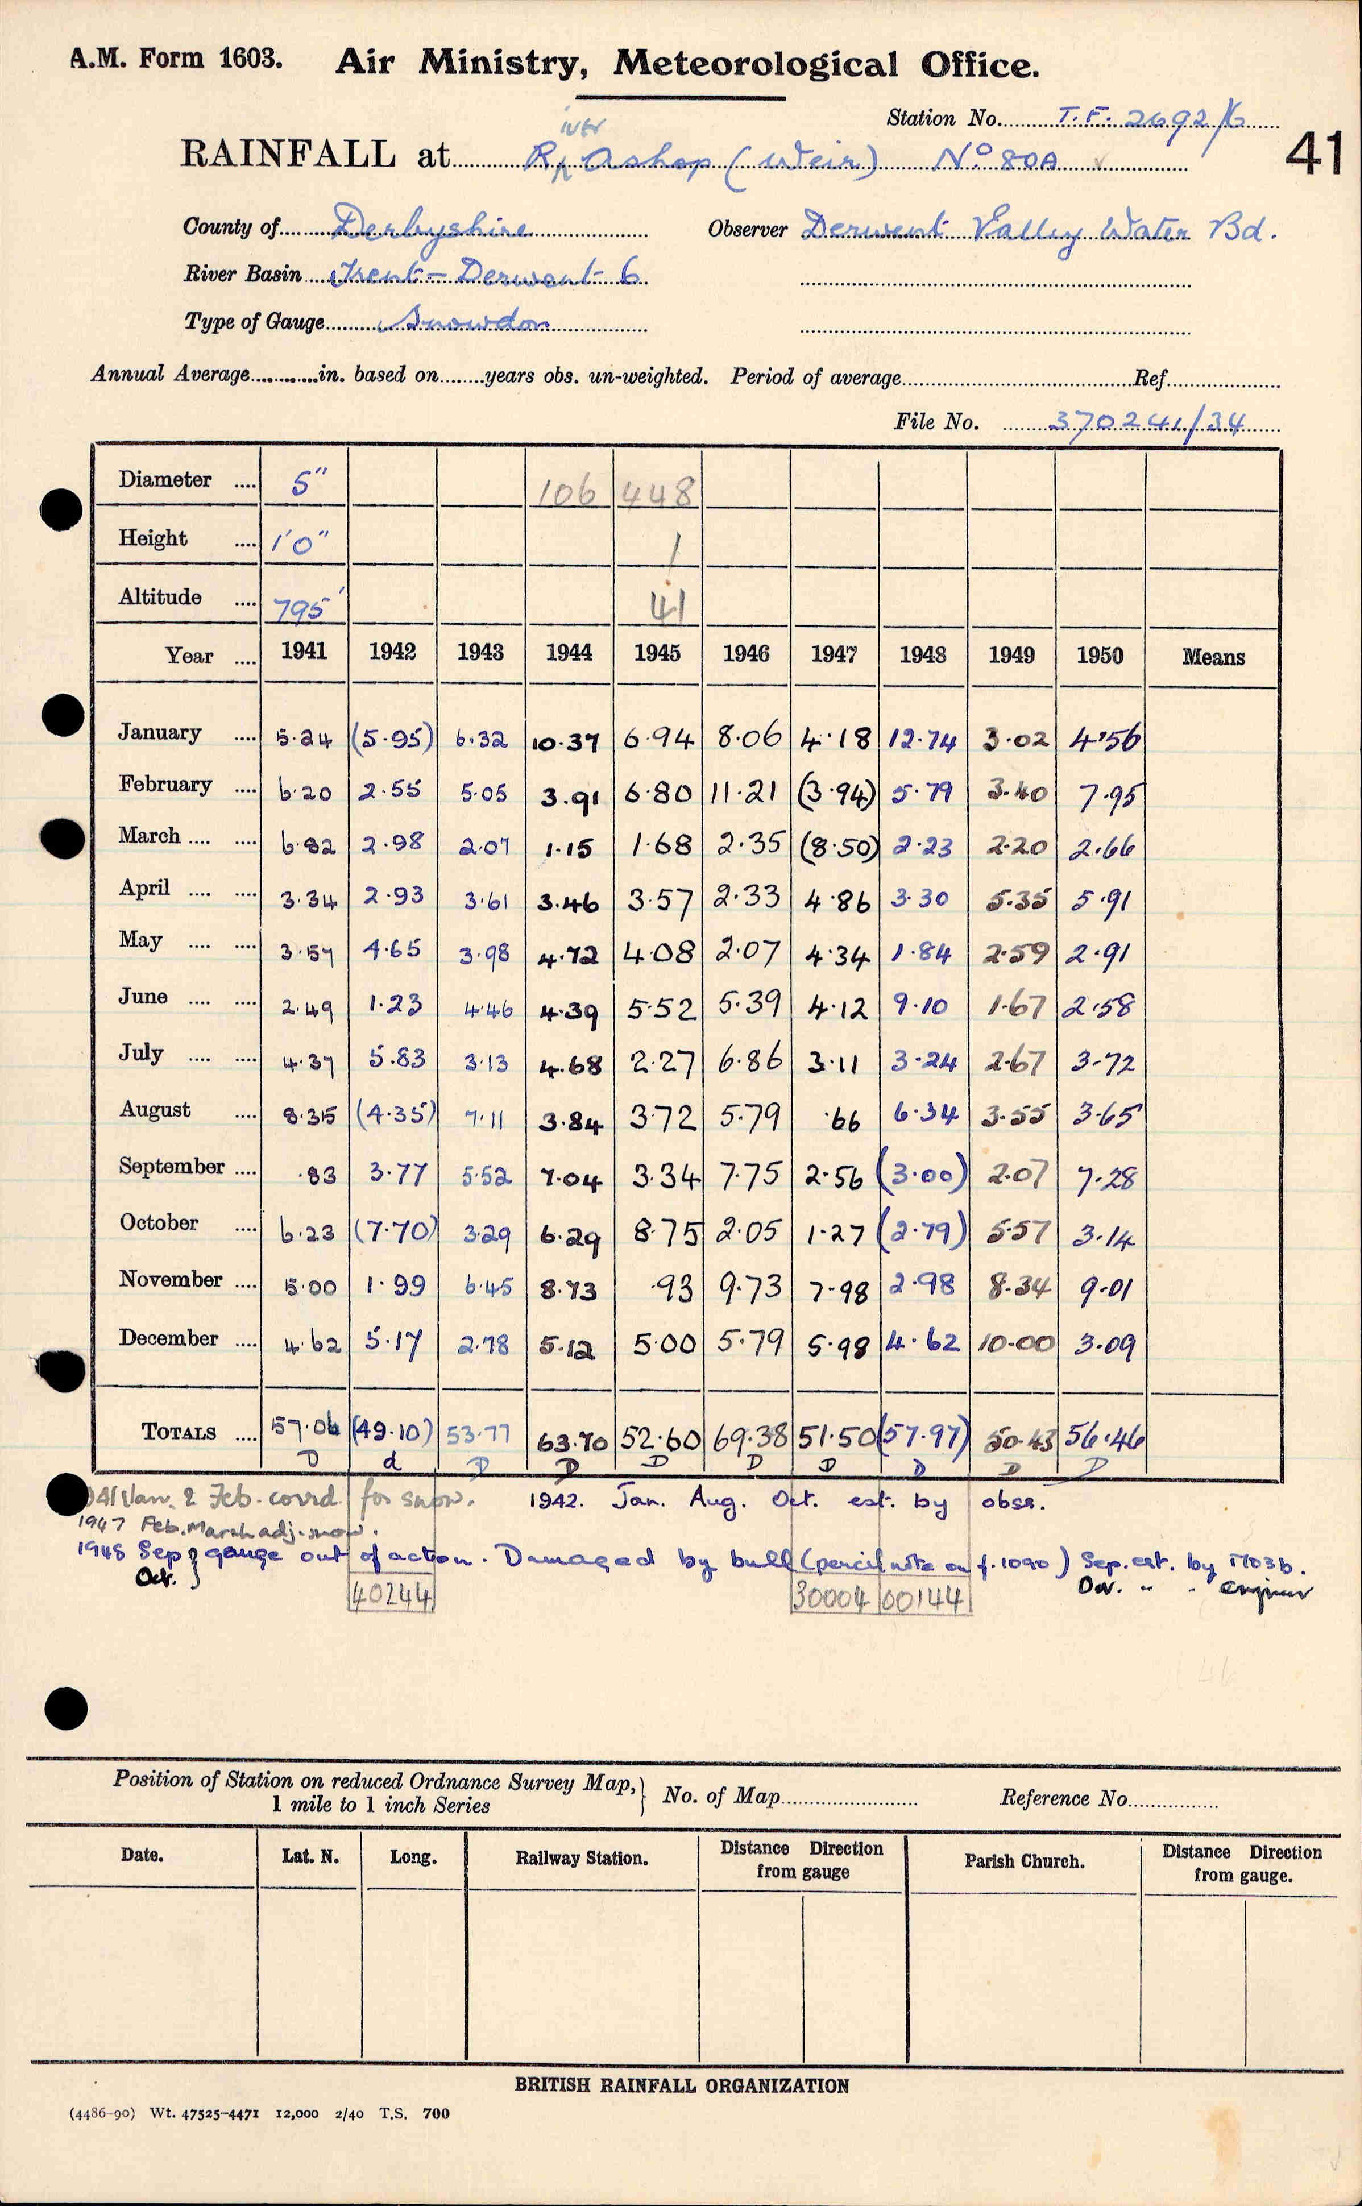 A.M. Form 1603. Air Ministry, Meteorological Office.
Station No. T.F. 2692/6
iver
RAINFALL at R. Ashop (Weir) No 80A 41
County of Derbyshire Observer Derwent Valley Water Bd.
River Basin Trent - Derwent 6
Type of Gauge Snowdon
Annual Average............in. based on........years obs. un-weighted. Period of average Ref.
File No. 370241/34
Diameter .... 5" 106 448
Height .... 1'0" 1
Altitude .... 795' 41
Year .... 1941 1942 1943 1944 1945 1946 1947 1948 1949 1950 Means
January .... 5.24 (5.95) 6.32 10.37 6.94 8.06 4.18 12.74 3.02 4.56
February .... 6.20 2.55 5.05 3.91 6.80 11.21 (3.94) 5.79 3.40 7.95
March .... .... 6.82 2.98 2.07 1.15 1.68 2.35 (8.50) 2.23 2.20 2.66
April .... .... 3.34 2.93 3.61 3.46 3.57 2.33 4.86 3.30 5.35 5.91
May .... .... 3.57 4.65 3.98 4.72 4.08 2.07 4.34 1.84 2.59 2.91
June .... .... 2.49 1.23 4.46 4.39 5.52 5.39 4.12 9.10 1.67 2.58
July .... .... 4.37 5.83 3.13 4.68 2.27 6.86 3.11 3.24 2.67 3.72
August .... 8.35 (4.35) 7.11 3.84 3.72 5.79 .66 6.34 3.55 3.65
September .... .83 3.77 5.52 7.04 3.34 7.75 2.56 (3.00) 2.07 7.28
October .... 6.23 (7.70) 3.29 6.29 8.75 2.05 1.27 (2.79) 5.57 3.14
November .... 5.00 1.99 6.45 8.73 .93 9.73 7.98 2.98 8.34 9.01
December .... 4.62 5.17 2.78 5.12 5.00 5.79 5.98 4.62 10.00 3.09
TOTALS .... 57.06 (49.10) 53.77 63.70 52.60 69.38 51.50 (57.97) 50.43 56.46
D d D D D D D D D D
Jan. & Feb. corrd for snow. 1942. Jan. Aug. Oct. est. by obsr.
1947 Feb. March adj. snow.
1948 Sep } gauge out of action. Damaged by bull (pencil note on f.1090) Sep. est. by M03b.
Oct. } 40244 30004 00144 " "
Position of Station on reduced Ordnance Survey Map, } No. of Map Reference No.
1 mile to 1 inch Series
Date. Lat. N. Long. Railway Station. Distance Direction from gauge Parish Church. Distance Direction from gauge.
BRITISH RAINFALL ORGANIZATION
(4486-90) Wt. 47525-4471 12,000 2/40 T.S. 700